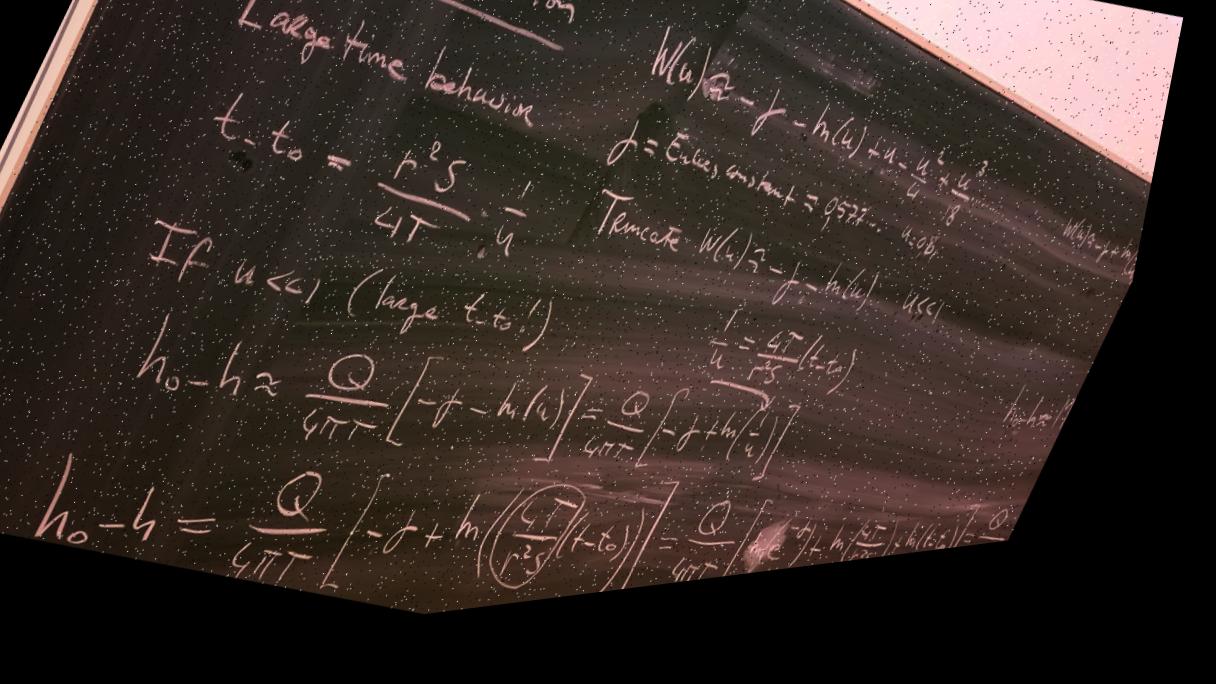 Large time behavior
t-t₀ = r²S/4T · 1/u
If u<<1 (large t-t₀!)
h₀-h ≈ Q/4πT [-γ - ln(u)] = Q/4πT [-γ + ln(1/u)]
h₀-h = Q/4πT [-γ + ln(4T/r²S (t-t₀))] = Q/4πT
W(u) ≈ -γ - ln(u) + u - u²/4 + u³/18
γ = Euler constant = 0,577...
Truncate W(u) ≈ -γ - ln(u) u<<1
1/u = 4T/r²S (t-t₀)